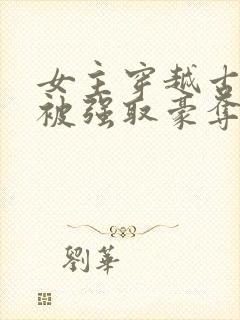 女主穿越古
被强取豪夺
劉華